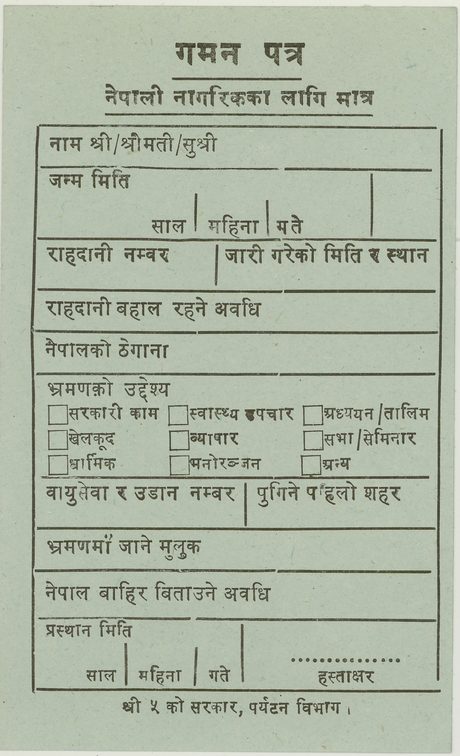 गमन पत्र
नेपाली नागरिकका लागि मात्र
नाम श्री/श्रीमती/सुश्री
जन्म मिति
साल महिना मते
राहदानी नम्बर जारी गरेको मिति र स्थान
राहदानी बहाल रहने अवधि
नेपालको ठेगाना
भ्रमणको उद्देश्य
सरकारी काम स्वास्थ्य उपचार अध्ययन/तालिम
खेलकूद व्यापार सभा/सेमिनार
धार्मिक मनोरञ्जन अन्य
वायुसेवा र उडान नम्बर पुगिने पहिलो शहर
भ्रमणमा जाने मुलुक
नेपाल बाहिर विताउने अवधि
प्रस्थान मिति
साल महिना गते हस्ताक्षर
श्री ५ को सरकार, पर्यटन विभाग।